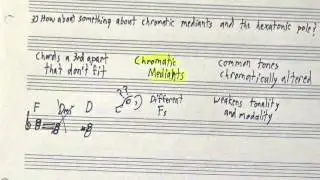 2) How about something about chromatic mediants and the hexatonic pole?
Chords a 3rd apart
that don't fit
Chromatic
Mediants
common tones
chromatically altered
Different
Fs
weakens tonality
and modality
F
D